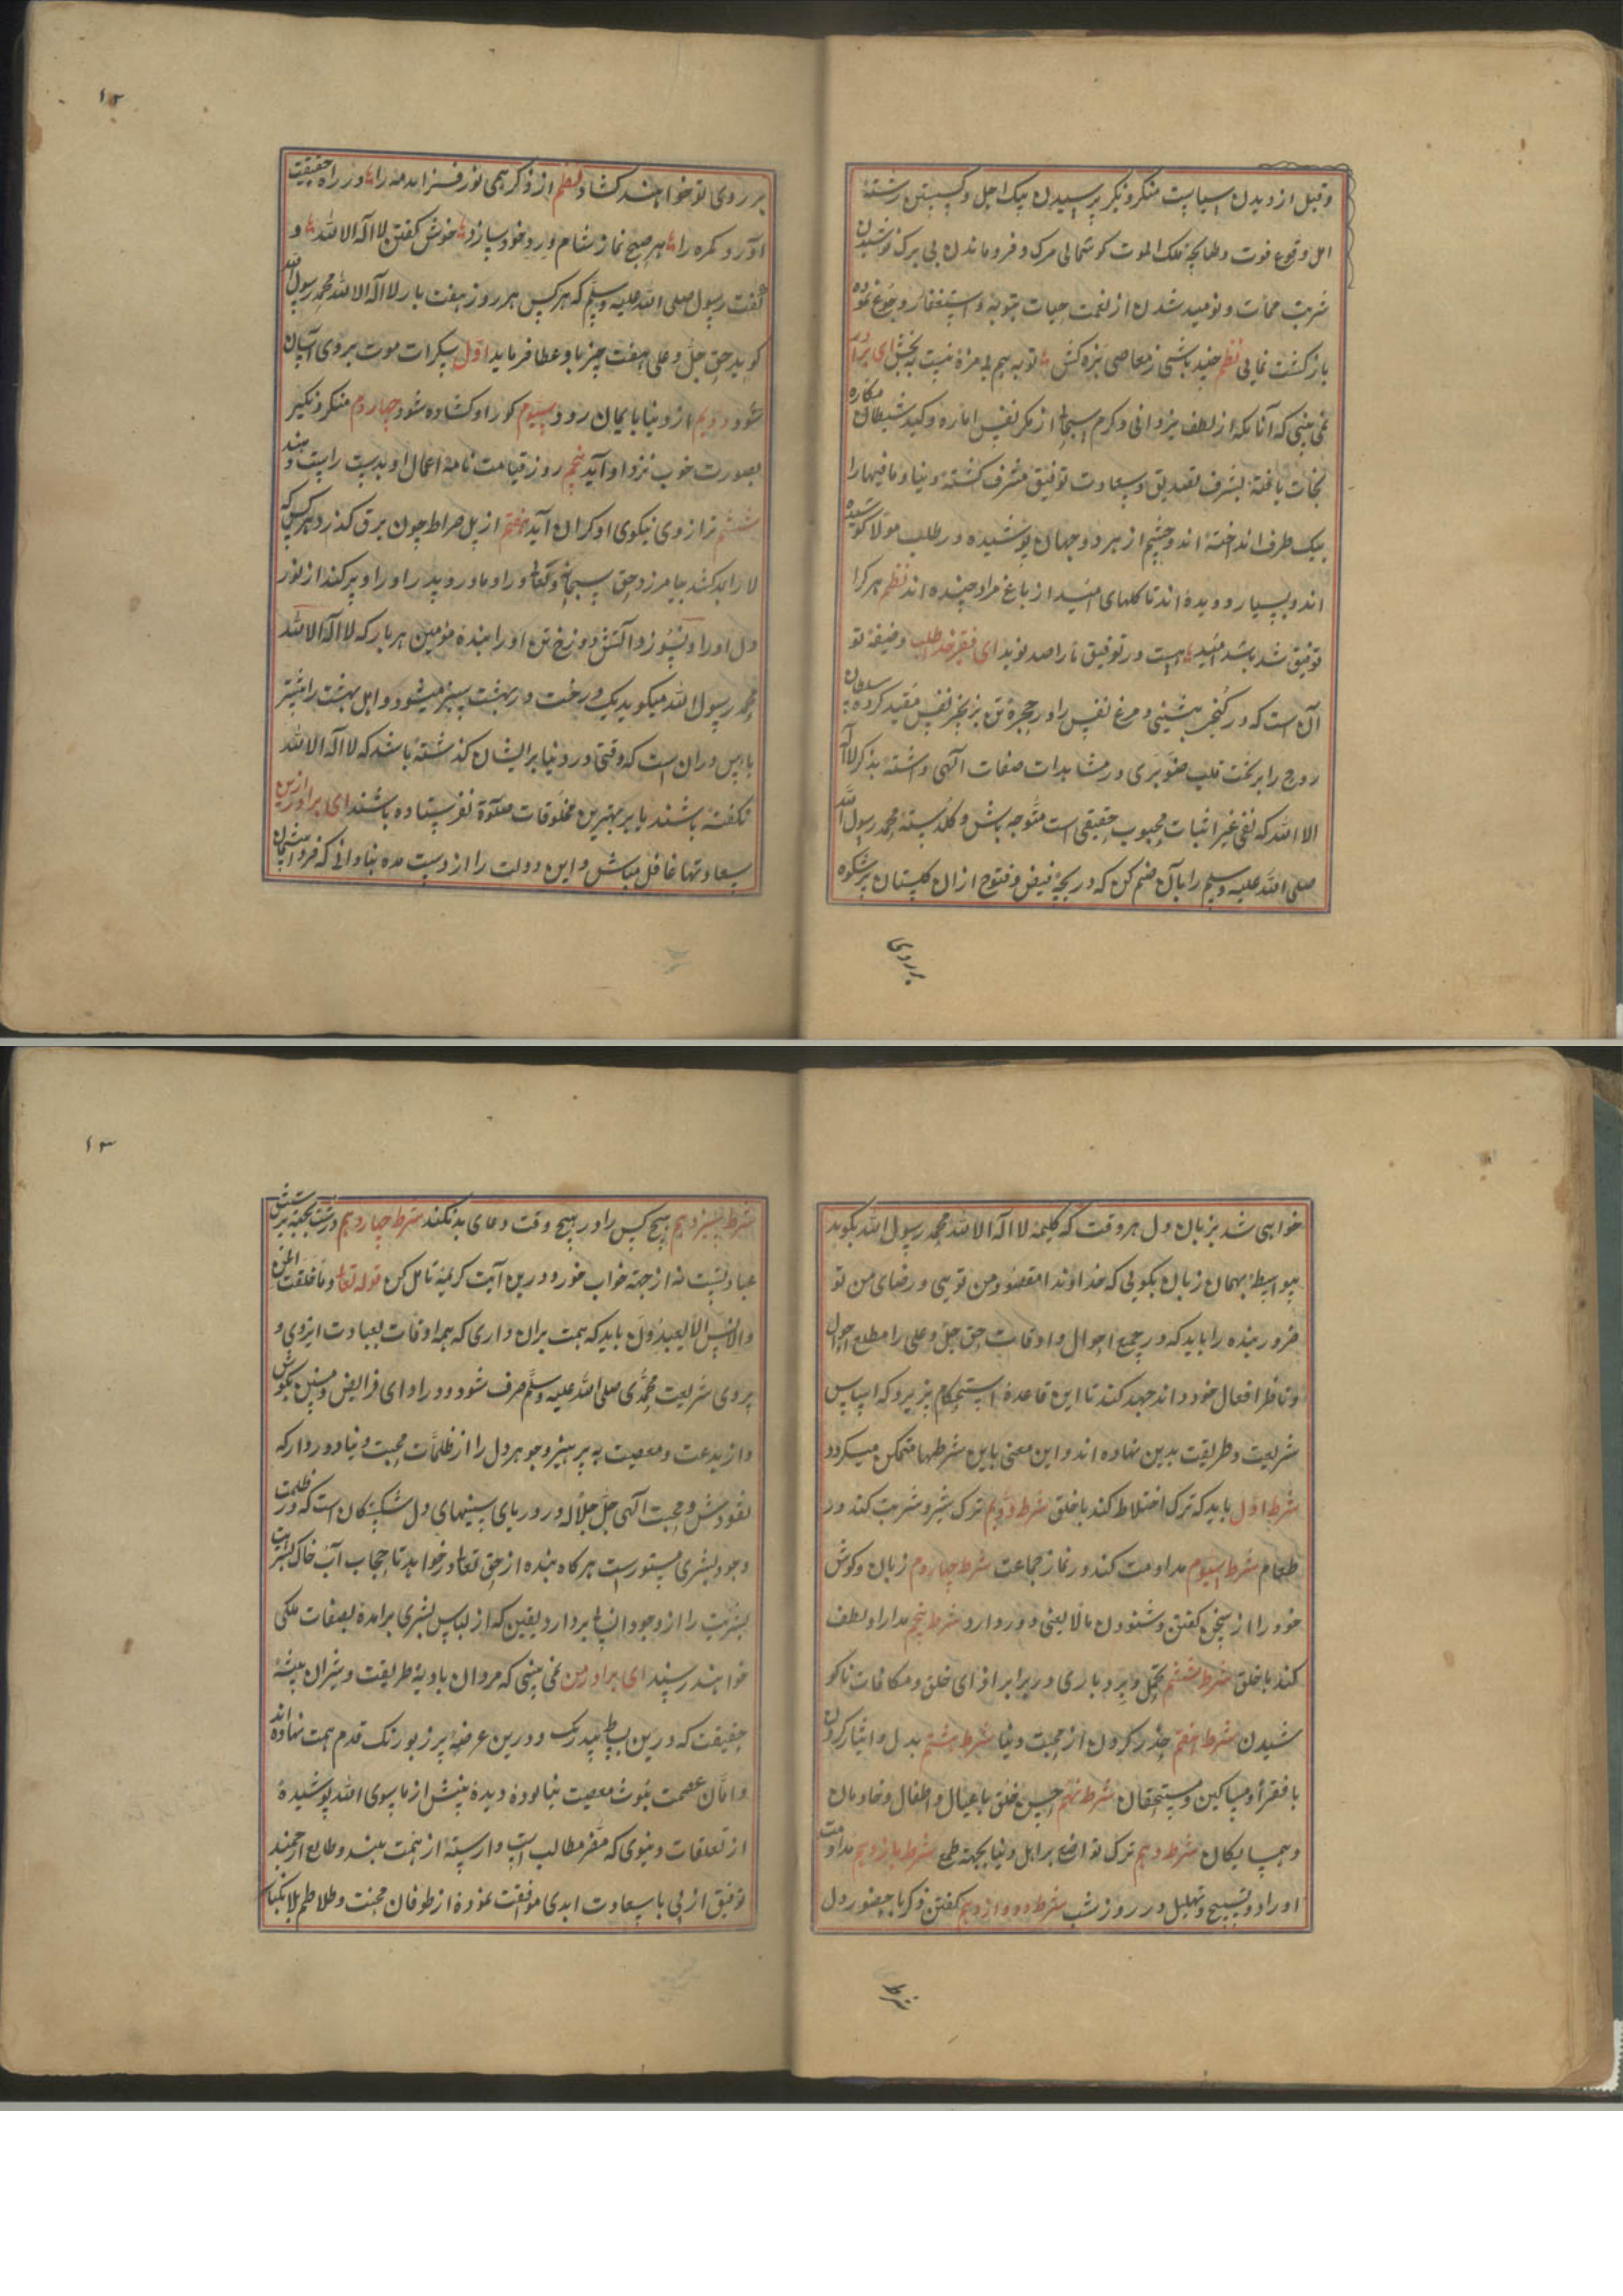 وقبل از دیدن سیاست منکر و نکیر پرسیدن پیک اجل و کسستن رشتهٔ
امل وقوع فوت وطپانچهٔ ملک الموت کوشمالی مرک و فرو ماندن بی برک نوشیدن
شربت ممات و نومید شدن از نعمت حیات بتوبه و استغفار رجوع نموده
باز کشت نمائی نظم چند باشی ز معاصی مزه کش توبه هم بی مزه نیست بچش ای برادر
نمی بینی که آنانکه از لطف یزدانی و کرم سبحانی از مکر نفس اماره و کید شیطان مکاره
نجات یافتهٔ بشرف تصدیق و سعادت توفیق مشرف کشتهٔ دنیا و مافیها را
بیک طرف انداختهٔ اند و چشم از هر دو جهان پوشیده در طلب مولا کوشیده
اند و بسیار دویده اند تا کلهای امید از باغ مراد چیده اند نظم هر کرا
توفیق شد باشد امید هست در توفیق ما را صد نوید ای فقیر خدا طلب وضیفهٔ تو
آن است که در کنجی بنشینی و مرغ نفس را در حجرهٔ تن بزنجیر نفس مقید کرده سلطان
روح را بر تخت قلب صنوبری در مشاهدات صفات الهی داشتهٔ بذکر لا اله
الا الله که نفی غیر اثبات محبوب حقیقی است متوجه باش و کلدستهٔ محمد رسول الله
صلی الله علیه وسلم را بآن ضم کن که دریچهٔ فیض و فتوح ازان کلستان پر شکوه
بر روی
۱۲
بر روی تو خواهند کشاد نظم از ذکر همی نور فزاید مه را در راه حقیقت
آورد کمره را هر صبح نماز شام ورد خود ساز خوش کفتن لا اله الا الله و
کفت رسول صلی الله علیه وسلم که هر کس هر روز هفت بار لا اله الا الله محمد رسول الله
کوید حق جل و علی هفت چیز باو عطا فرماید اول سکرات موت بروی آسان
شود دویم از دنیا با یمان رود سیوم کور او کشاده شود چهاروم منکر و نکیر
بصورت خوب نزد او آید پنجم روز قیامت نامهٔ اعمال او بدست راست دهند
ششم ترازوی نیکوی او کران آید هفتم از پل صراط چون برق کذرد هر کس که
لا را بمد کشد بیامرزد حق سبحانه و تعالی او را و مادر و پدر او را و پر کند از نور
دل او را و نسوزد آتش دوزخ تن او را بندهٔ مؤمن هر بار که لا اله الا الله
محمد رسول الله میکوید یک درخت در بهشت سبز میشود و اهل بهشت را بیشتر
یأس در ان است که وقتی در دنیا بر ایشان کذشتهٔ باشد که لا اله الا الله
نکفتهٔ باشند یا بر بهترین مخلوقات صلوة نفرستاده باشند ای برادر ازین
سعادتها غافل مباش و این دولت را از دست مده بنادانی که فردا پشیمان
خواهی شد بزبان دل هر وقت که کلیمهٔ لا اله الا الله محمد رسول الله بکوید
بیواسطهٔ بهمان زبان بکوئی که خداوندا مقصود من توئی و رضای من تو
ضرور بنده را باید که در جمیع احوال و اوقات حق جل و علی را مطلع احوال
و ناظر افعال خود داند جهد کند تا این قاعدهٔ استحکام پزیرد که اساس
شریعت و طریقت بدین نهاده اند و این معنی باین شرطها متمکن میکردد
شرط اول باید که ترک اختلاط کند با خلق شرط دویم ترک شر و شربت کند در
طعام شرط سیوم مداومت کند در نماز جماعت شرط چهاروم زبان و کوش
خود را از سخن کفتن و شنودن مالایعنی دور دارد شرط پنجم مدارا و لطف
کند با خلق شرط ششم تحمل و بردباری در برابر اذای خلق و مکافات ناکو
شیدن شرط هفتم حذر کردن از محبت دنیا شرط هشتم بدل و ایثار کردن
با فقرا و مساکین و مستحقان شرط نهم حسن خلق با عیال و اطفال و خادمان
و همسایکان شرط دهم ترک تواضع بر اهل دنیا بجهة طمع شرط یازدهم مداومت
اوراد و تسبیح و تهلیل در روز شب شرط دووازدهم کفتن ذکر با حضور دل
شرط
۱۳
شرط سیزدهم هیچ کس را در هیچ وقت دعای بد نکند شرط چهاردهم درست بجهة پرستش
عبادتست نه از جهة خواب خور و درین آیت کریمهٔ تامل کن قوله تعالی وما خلقت الجن
والانس الا لیعبدون باید که همت بران داری که همه اوقات بعبادت ایزدی و
پیروی شریعت محمدی صلی الله علیه وسلم صرف شود و در ادای فرایض و سنن بکوش
و از بدعت و معصیت به پرهیز و جوهر دل را از ظلمات محبت دنیا دور دار که
نقود عشق و محبت الهی جل جلاله در دریای سینهای دل شکستکان است که در ظلمت
وجود بشری مستور است هر کاه بنده از حق تعالی در خواهد تا حجاب آب خاک
بشریت را از وجود انسانی بردارد یقین که از لباس بشری برامده بصفات ملکی
خواهند رسید ای برادر من نمی بینی که مردان بادیهٔ طریقت و شیران بیشهٔ
حقیقت که درین بساط بیدرنک و درین عرصهٔ پر زیور نک قدم همت نهاده اند
دامان عصمت بلوث معصیت نیالوده دیدهٔ بینش از ماسوی الله پوشیدهٔ
از تعلقات دنیوی که مقر مطالب است وارستهٔ از همت بلند و طالع ارجمند
توفیق ازلی با سعادت ابدی موافقت نموده از طوفان محنت و طلاطم بلا